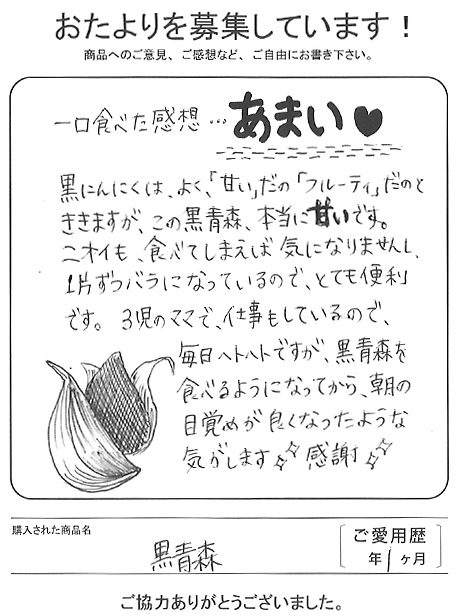 おたよりを募集しています！
商品へのご意見、ご感想など、ご自由にお書き下さい。
一口食べた感想…あまい♥
黒にんにくは、よく、「甘い」だの「フルーティ」だのと
ききますが、この黒青森、本当に甘いです。
ニオイも、食べてしまえば気になりませんし、
1片ずつバラになっているので、とても便利
です。3児のママで、仕事もしているので、
毎日ヘトヘトですが、黒青森を
食べるようになってから、朝の
目覚めが良くなったような
気がします✨感謝✨
購入された商品名
黒青森
ご愛用歴
年1ヶ月
ご協力ありがとうございました。